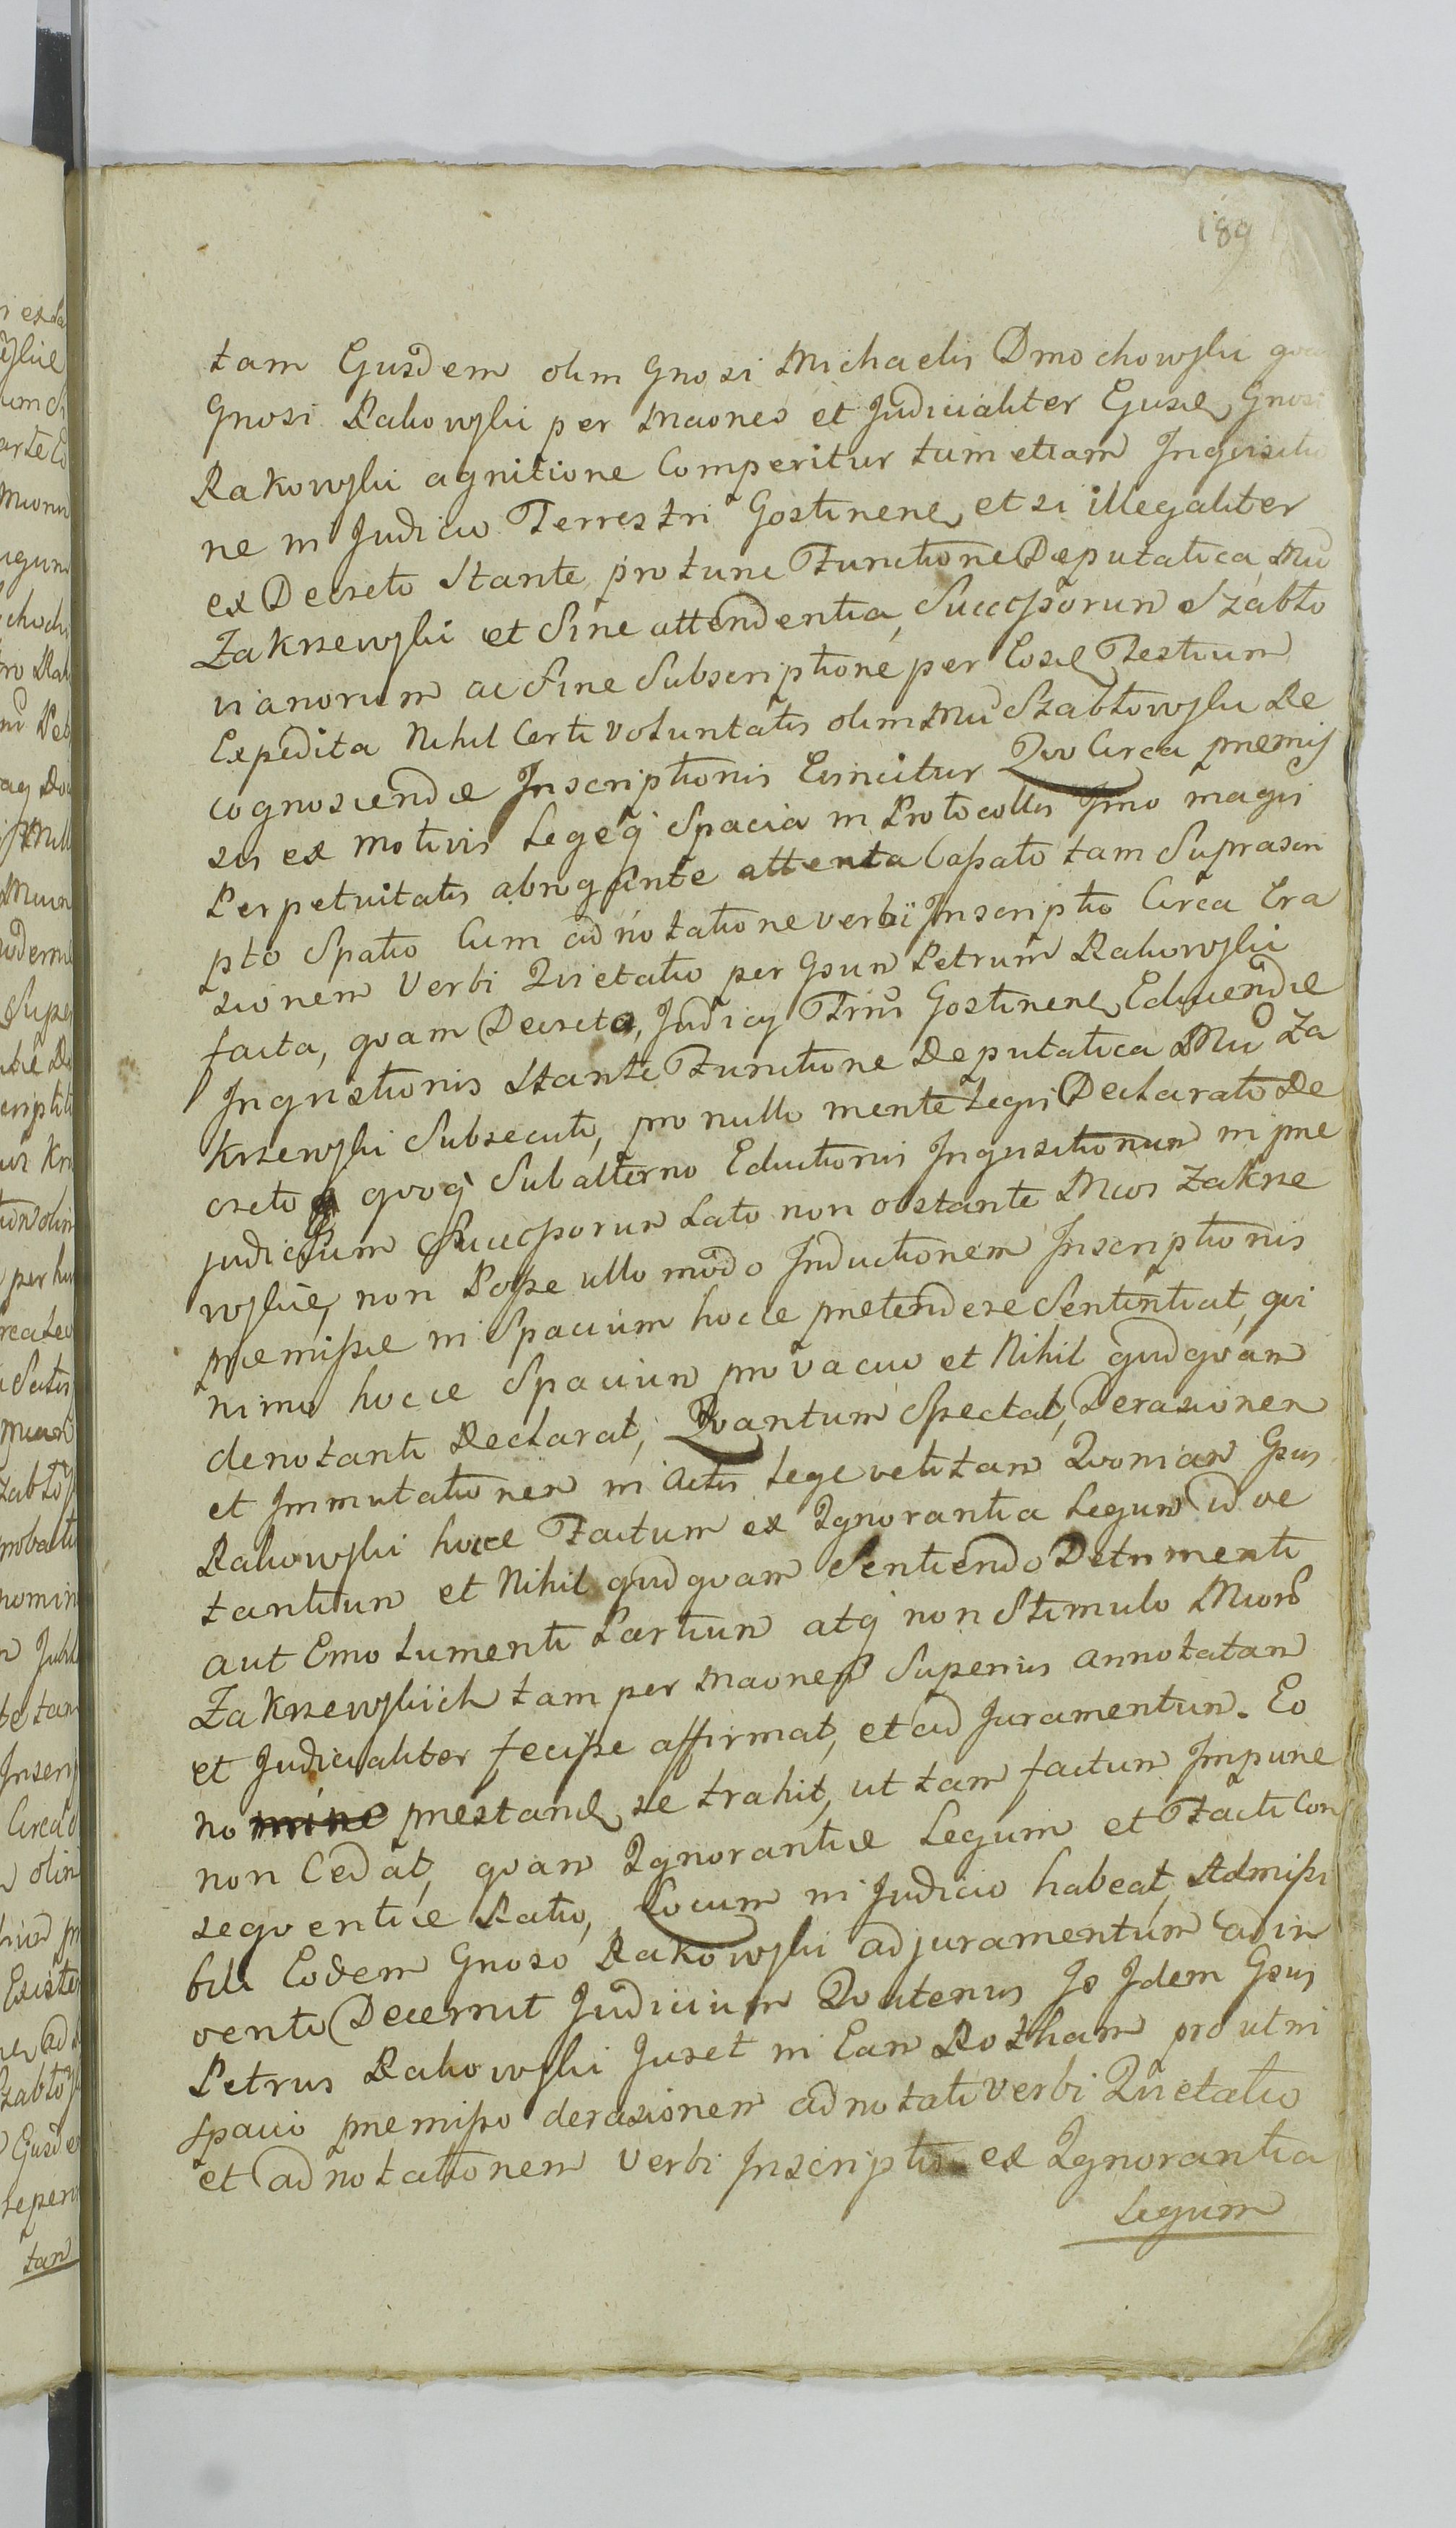 189
tam Ejusdem olim Gnosi Michaelis Dmochowski
Gnosi Rakowski per Maones et Judicialiter Ejusd Gnosi
Rakowski agnitione Comperitur tum etiam Inquisitio
ne in Judicio Terrestri Gostinenẽ, et si illegaliter
ex Decreto Stante protunc Functione Deputatica, Mci
Zakrzewski et Sine attendentia, Successorum Szabło
vianorum ac Sine Subscriptione per Eosd Testium
Expedita Nihil Certi Voluntatis olim Mci Szabłowski Re
cognoscendæ Inscriptionis Evincitur Quo Circa præmis
sis ex motivis Legeq Spacia in Protocollis Imo magis
Perpetuitatis abrogante attenta Cassato tam Suprascri
pto Spatio Cum adnotatione verbi Inscriptio Circa Era
sionem Verbi Quietatio per Gsum Petrum Rakowski
facta, quam Decreto, Judicij Trris Gostinenẽ, Educendæ
Inquisitionis Stante Functione Deputatica Mci Za
krzewski Subsecuto, pro nullo mente Legis Declarato De
creto quoq Subalterno Eductionis Inquisitionum in præ
judicium Successorum Lato non obstante Mcos Zakrze
wskie, non Posse ullo modo Inductionem Inscriptionis
præmissæ in Spacium hocce prætendere Sententiat, qui
nimo hocce Spacium pro vacuo et Nihil quidquam
denotanti Declarat, Quantum Spectat, Derasionem
et Immutationem in Actis Lege vetitam Quoniam Gsus
Rakowski hocce Factum ex Ignorantia Legum id ve
tantium et Nihil quidquam Sentiendo Detrimenti
aut Emolumenti Partium atq non Stimulo Mcorũ
Zakrzewskich tam per Maones Superius annotatam
et Judicialiter fecisse affirmat, et ad Juramentum. Eo
no mine præstand, se trahit, ut tam factum Impune
non Cedat, quam Ignorantiæ Legum et Facti Con
sequentiæ Ratio, Locum in Judicio habeat, Admissi
bili Eodem Gnoso Rakowski ad juramentum ad in
vento Decernit Judicium Quatenus Is Idem Gsus
Petrus Rakowski Juret in Eam Rotham pro ut in
spacio præmisso derasionem adnotati Verbi Quietatio
et adnotationem Verbi Inscriptio ex Ignorantia
Legum